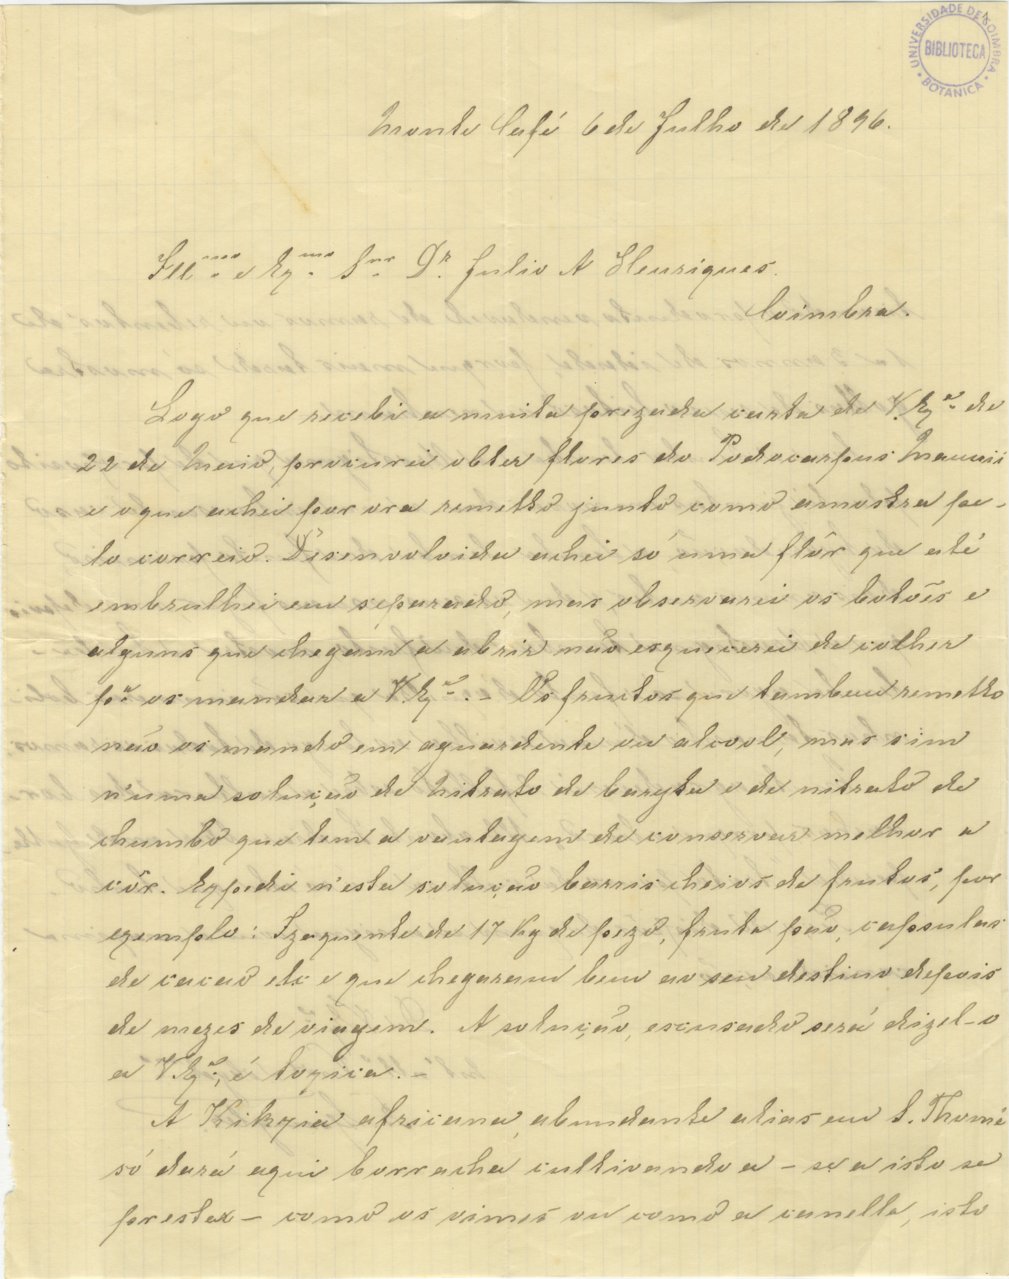 UNIVERSIDADE DE COIMBRA
BIBLIOTECA
BOTANICA
Monte Café 6 de Julho de 1896.
Illmo e Exmo Snr Dr. Julio A Henriques.
Coimbra.
Logo que recebi a muita prezada carta de V. Exa de
22 de Maio, procurei obter flores do Podocarpus Mannii
e o que achei por ora remetto junto como amostra pe-
lo correio. Desenvolvida achei só uma flôr que até
embrulhei em separado, mas observarei os botões e
alguns que chegam a abrir não esquecerei de colher
pa os mandar a V. Exa. – Os fructos que tambem remetto
não os mando em aguardente ou alcool, mas sim
n'uma solução de Nitrato de baryta e de nitrato de
chumbo que tem a vantagem de conservar melhor a
côr. Expedi n'esta solução barris cheios de frutos, por
exemplo: Izaquente de 17 Kg de pezo, fruta pão, capsulas
de cacao etc e que chegaram bem ao seu destino depois
de mezes de viagem. A solução, escusado será dizel-o
a V. Exa, é toxica. –
A Kikxia africana, abundante alias em S. Thomé
só dará aqui borracha cultivando a – se a isto se
prestar – como os vimes ou como a canella, isto